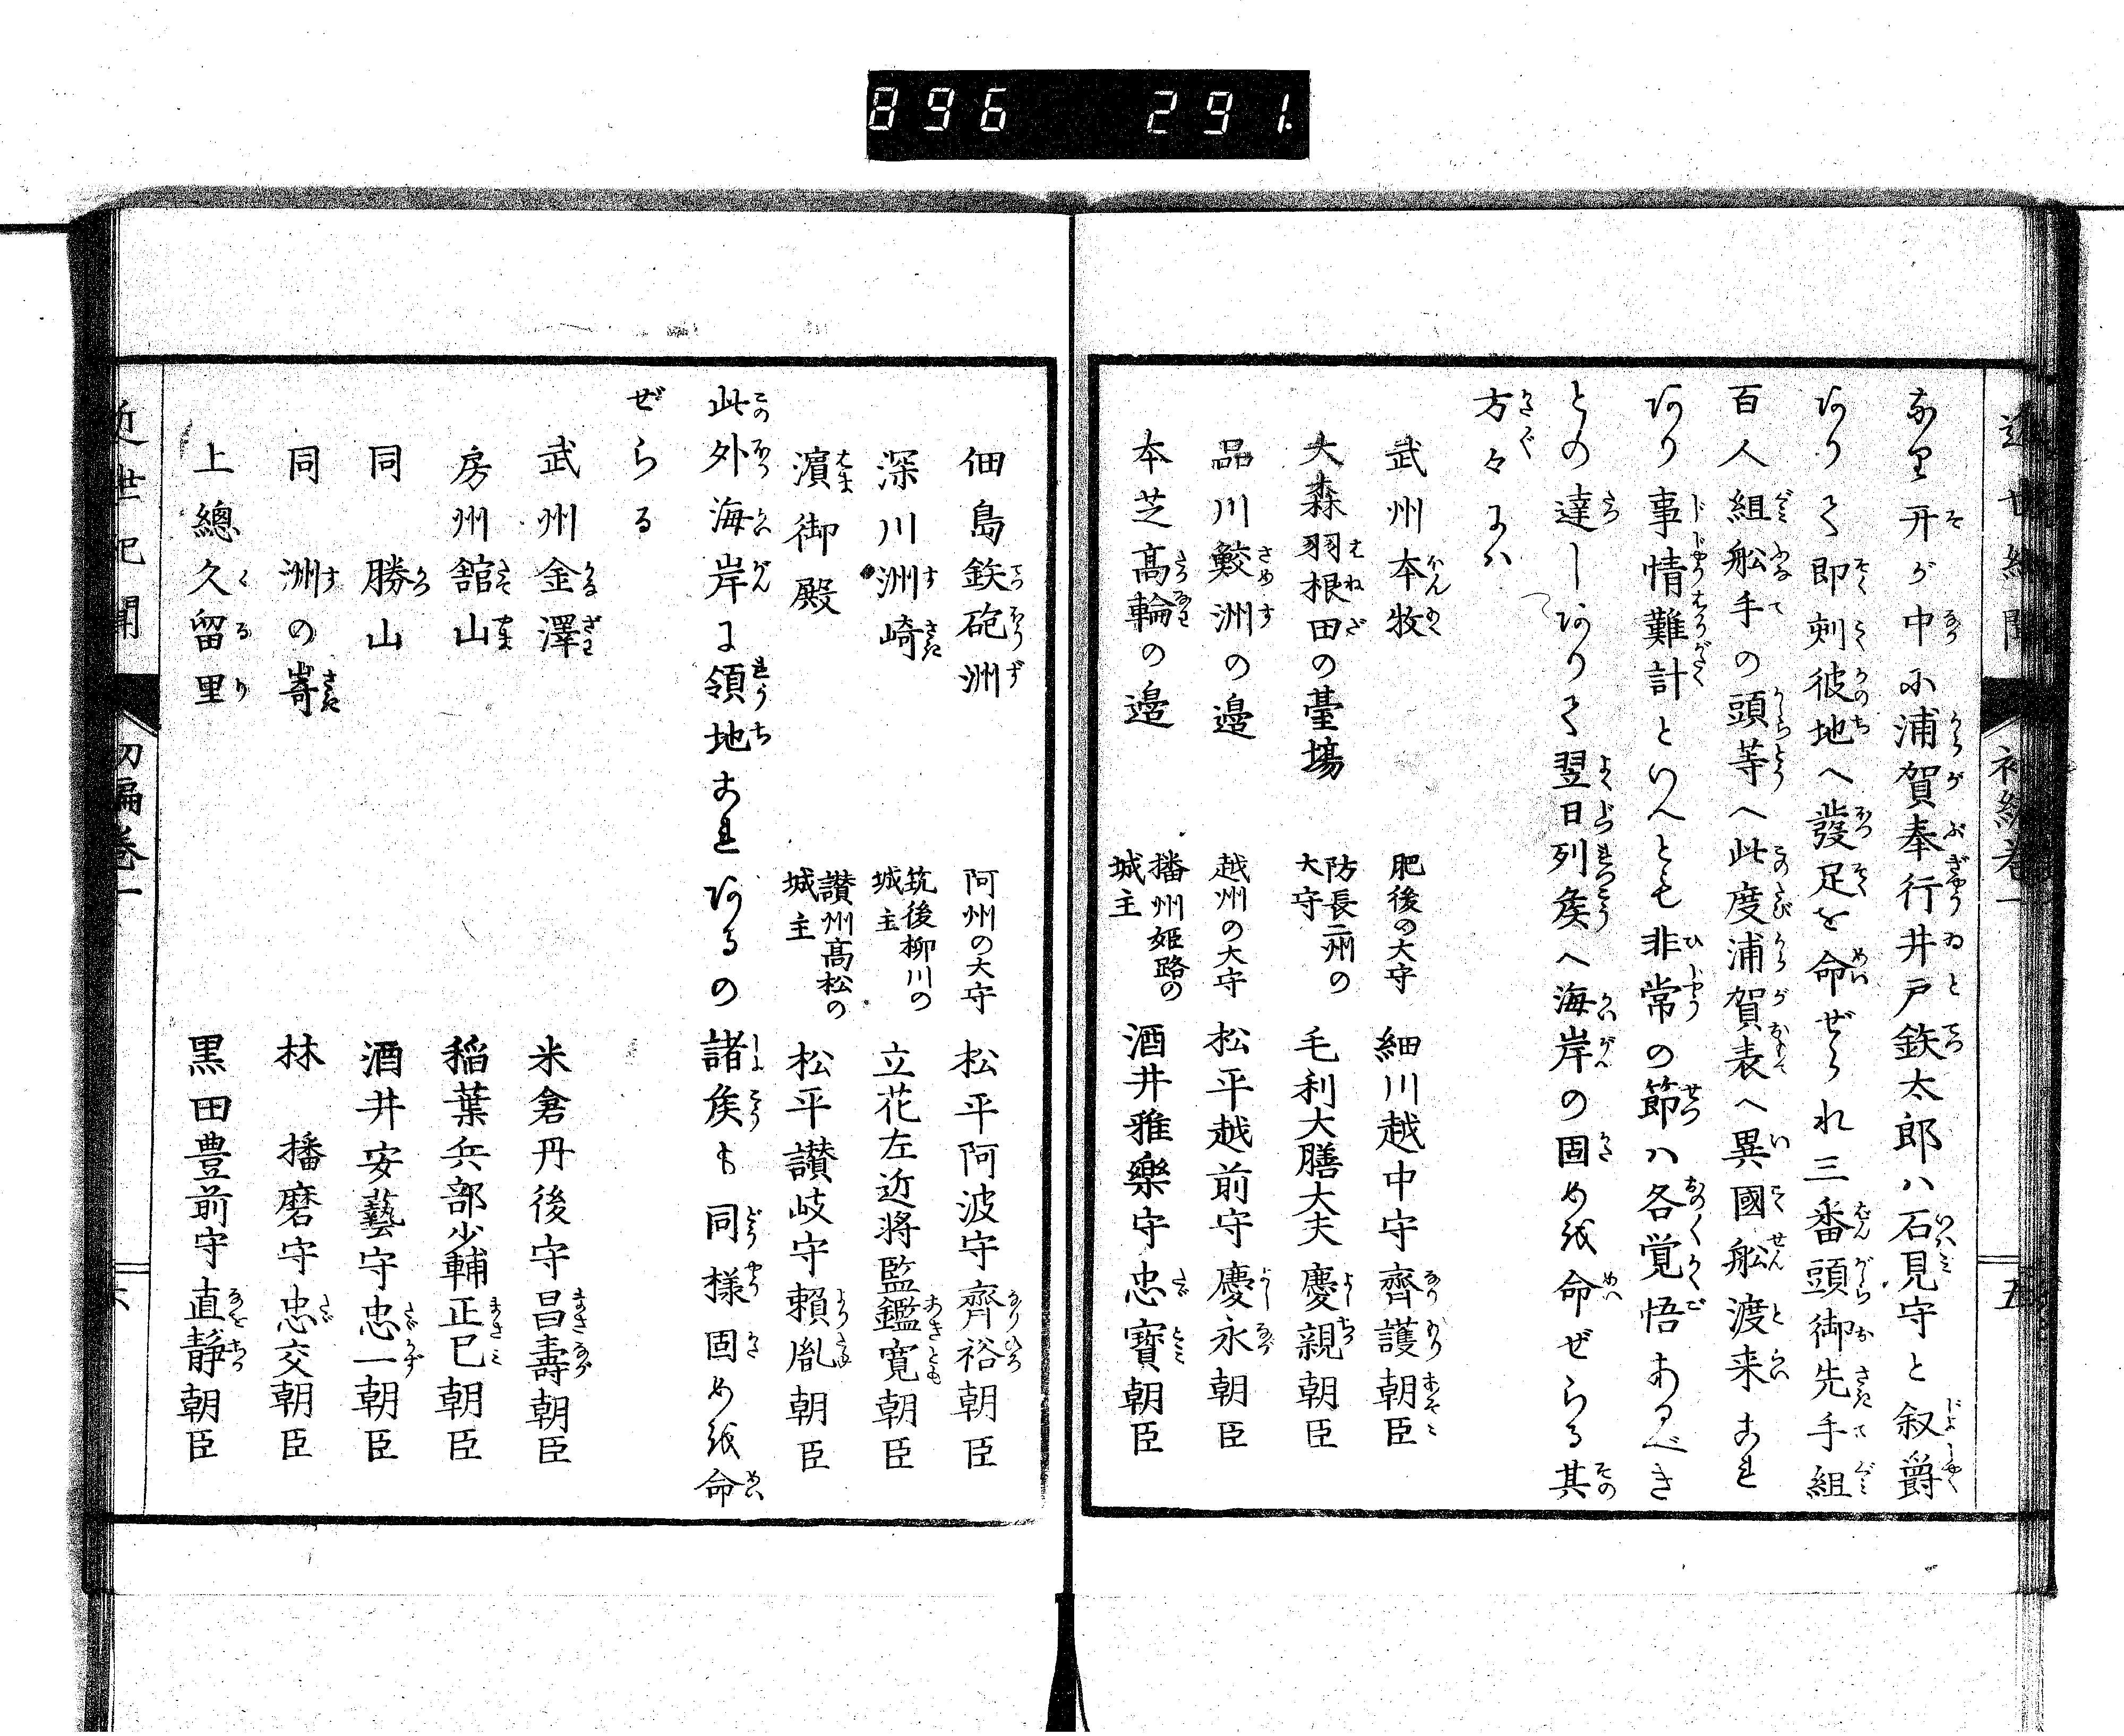 896 291.
近世紀聞 初編巻一 五
なり其が中に浦賀奉行井戸鉄太郎ハ石見守と叙爵
ありて即刻彼地へ發足を命ぜられ三番頭御先手組
百人組舩手の頭等へ此度浦賀表へ異國舩渡来これ
あり事情難計といへとも非常の節ハ各覚悟あるべき
との達しありて翌日列矦へ海岸の固めを命ぜらる其
方々にハ
武州本牧 肥後の大守 細川越中守齊護朝臣
大森羽根田の臺場 防長二州の大守 毛利大膳大夫慶親朝臣
品川鮫洲の邉 越州の大守 松平越前守慶永朝臣
本芝髙輪の邉 播州姫路の城主 酒井雅樂守忠寳朝臣
佃島鉄砲洲 阿州の大守 松平阿波守齊裕朝臣
深川洲崎 筑後柳川の城主 立花左近将監鑑寛朝臣
濵御殿 讃州髙松の城主 松平讃岐守頼胤朝臣
此外海岸に領地これあるの諸矦も同様固めを命
ぜらる
武州金澤 米倉丹後守昌壽朝臣
房州舘山 稲葉兵部少輔正巳朝臣
同 勝山 酒井安藝守忠一朝臣
同 洲の嵜 林 播磨守忠交朝臣
上總久留里 黒田豊前守直靜朝臣
近世紀聞 初編巻一 六